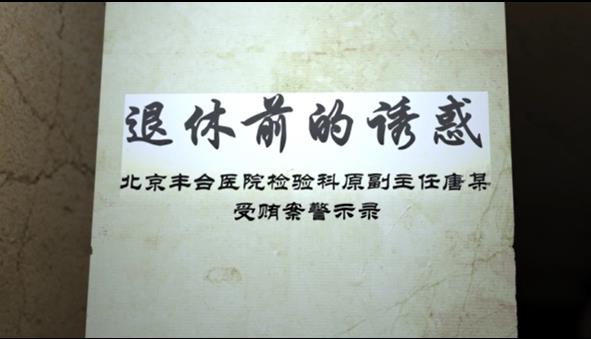 退休前的诱惑
北京丰台医院检验科原副主任唐某
受贿案警示录